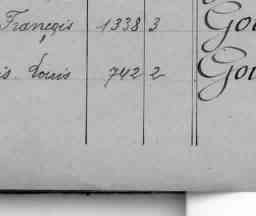 François 1338 3 Gou
is Louis 742 2 Gou